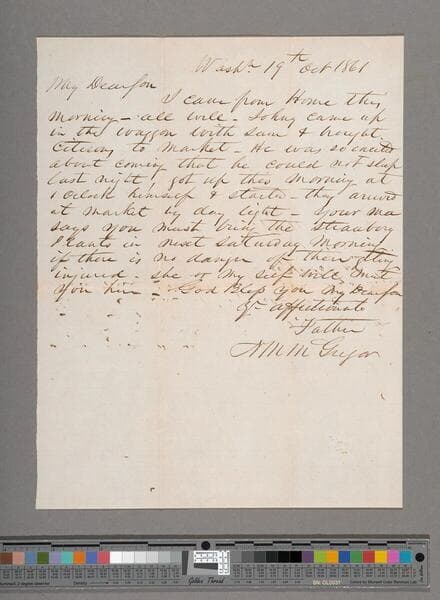 Washn 19th Oct 1861
My Dear Son
I came from Home this
Morning - all well - Johny came up
in the waggon with Sam & brought
to Market - He was so
about coming that he could not sleep
last night, got up this Morning at
1 oclock himself & started - they arived
at market by day light - your ma
says you must bring the Strawbery
Plants in next Saturday Morning
if there is no danger of their
injured - she or my self will meet
you here - God bless you My Dear Son
Yr affectionate
Father
N M McGregor
Golden Thread